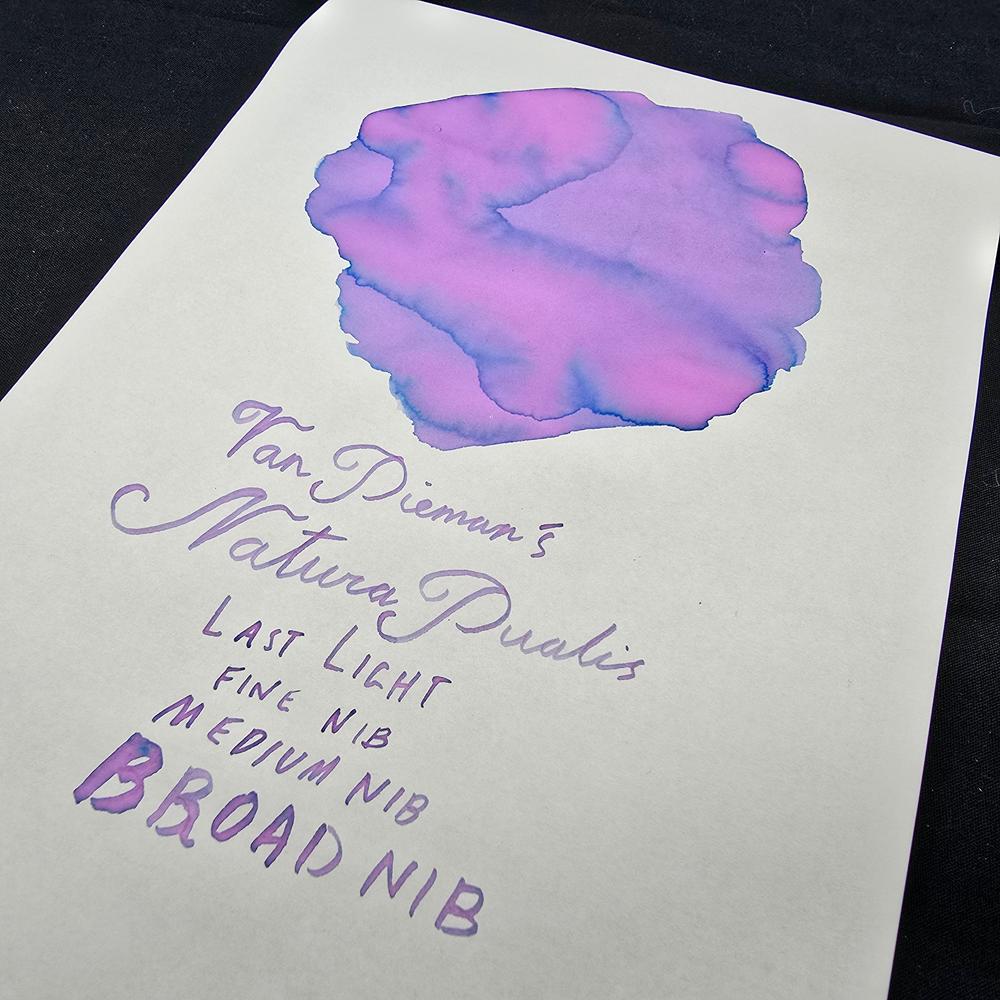 Van Dieman's
Natura Dualis
LAST LIGHT
FINE NIB
MEDIUM NIB
BROAD NIB